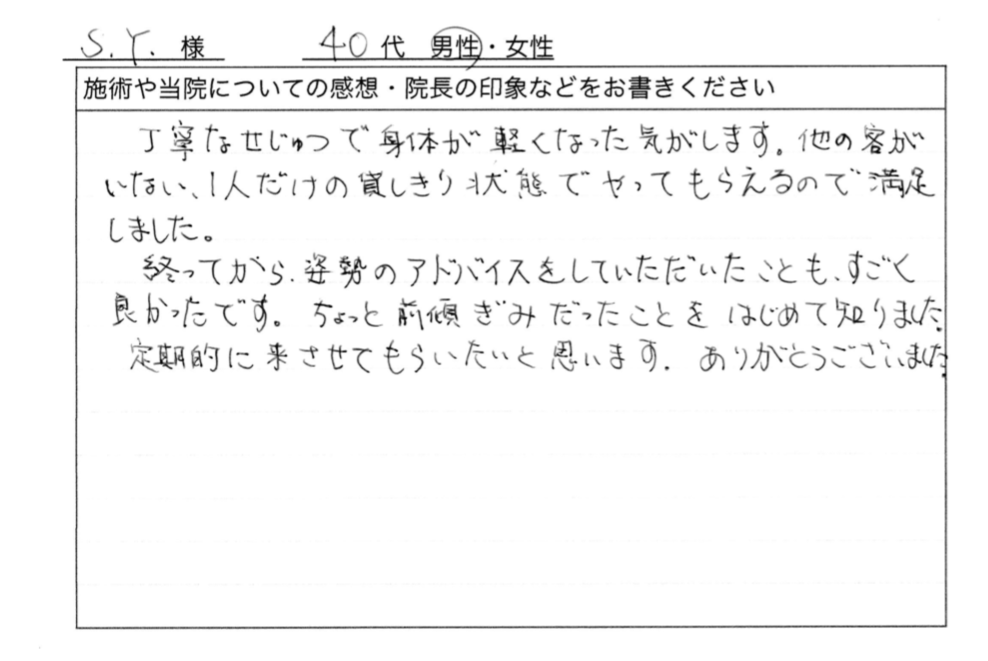 S.Y. 様 40代 男性・女性
施術や当院についての感想・院長の印象などをお書きください
丁寧なせじゅつで身体が軽くなった気がします。他の客が
いない、1人だけの貸しきり状態でやってもらえるので満足
しました。
終ってから、姿勢のアドバイスをしていただいたことも、すごく
良かったです。ちょっと前傾ぎみだったことをはじめて知りました。
定期的に来させてもらいたいと思います。ありがとうございました。